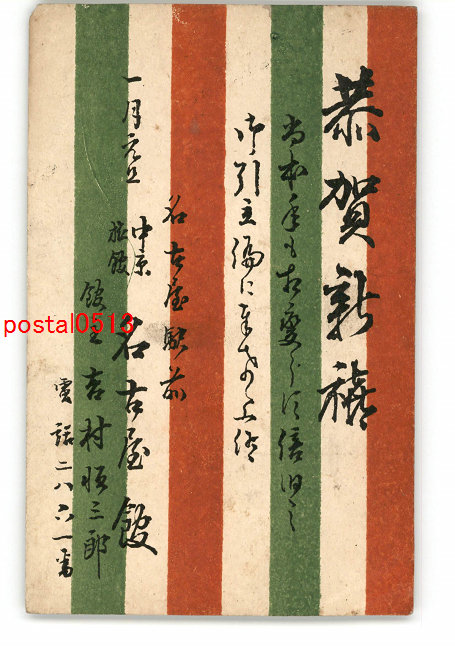 恭賀新禧
尚本年も相変らず倍旧之
御引立偏に奉希上候
一月元旦
名古屋駅前
中京
旅館
名古屋館
館主 吉村 三郎
電話二八六一番
postal0513